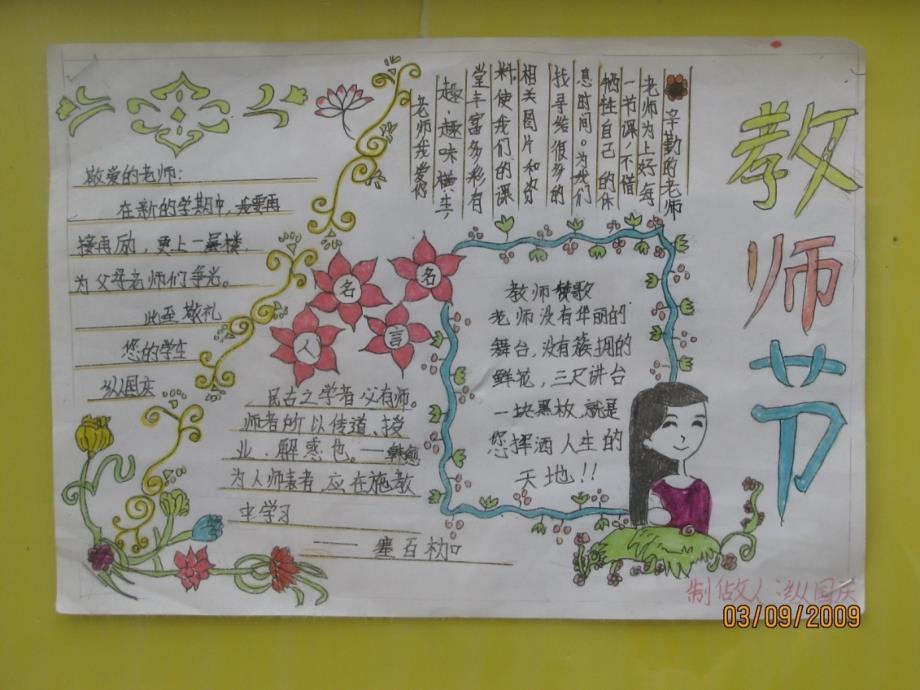 教师节
辛勤的老师
老师为上好每
一节课,不惜
牺牲自己的休
息时间。为我们
找寻给很多的
相关图片和资
料,使我们的课
堂丰富多彩有
趣,趣味横生
老师我爱你
敬爱的老师:
在新的学期中,我要再
接再励,更上一层楼
为父母老师们争光。
此至敬礼
您的学生
纵国庆
名人名言
古之学者必有师。
师者所以传道、授
业、解惑也。——韩愈
为人师表者,应在施教
中学习
——塞百
教师赞歌
老师没有华丽的
舞台,没有簇拥的
鲜花,三尺讲台
一块黑板,就是
您挥洒人生的
天地!!
制做人:纵国庆
03/09/2009